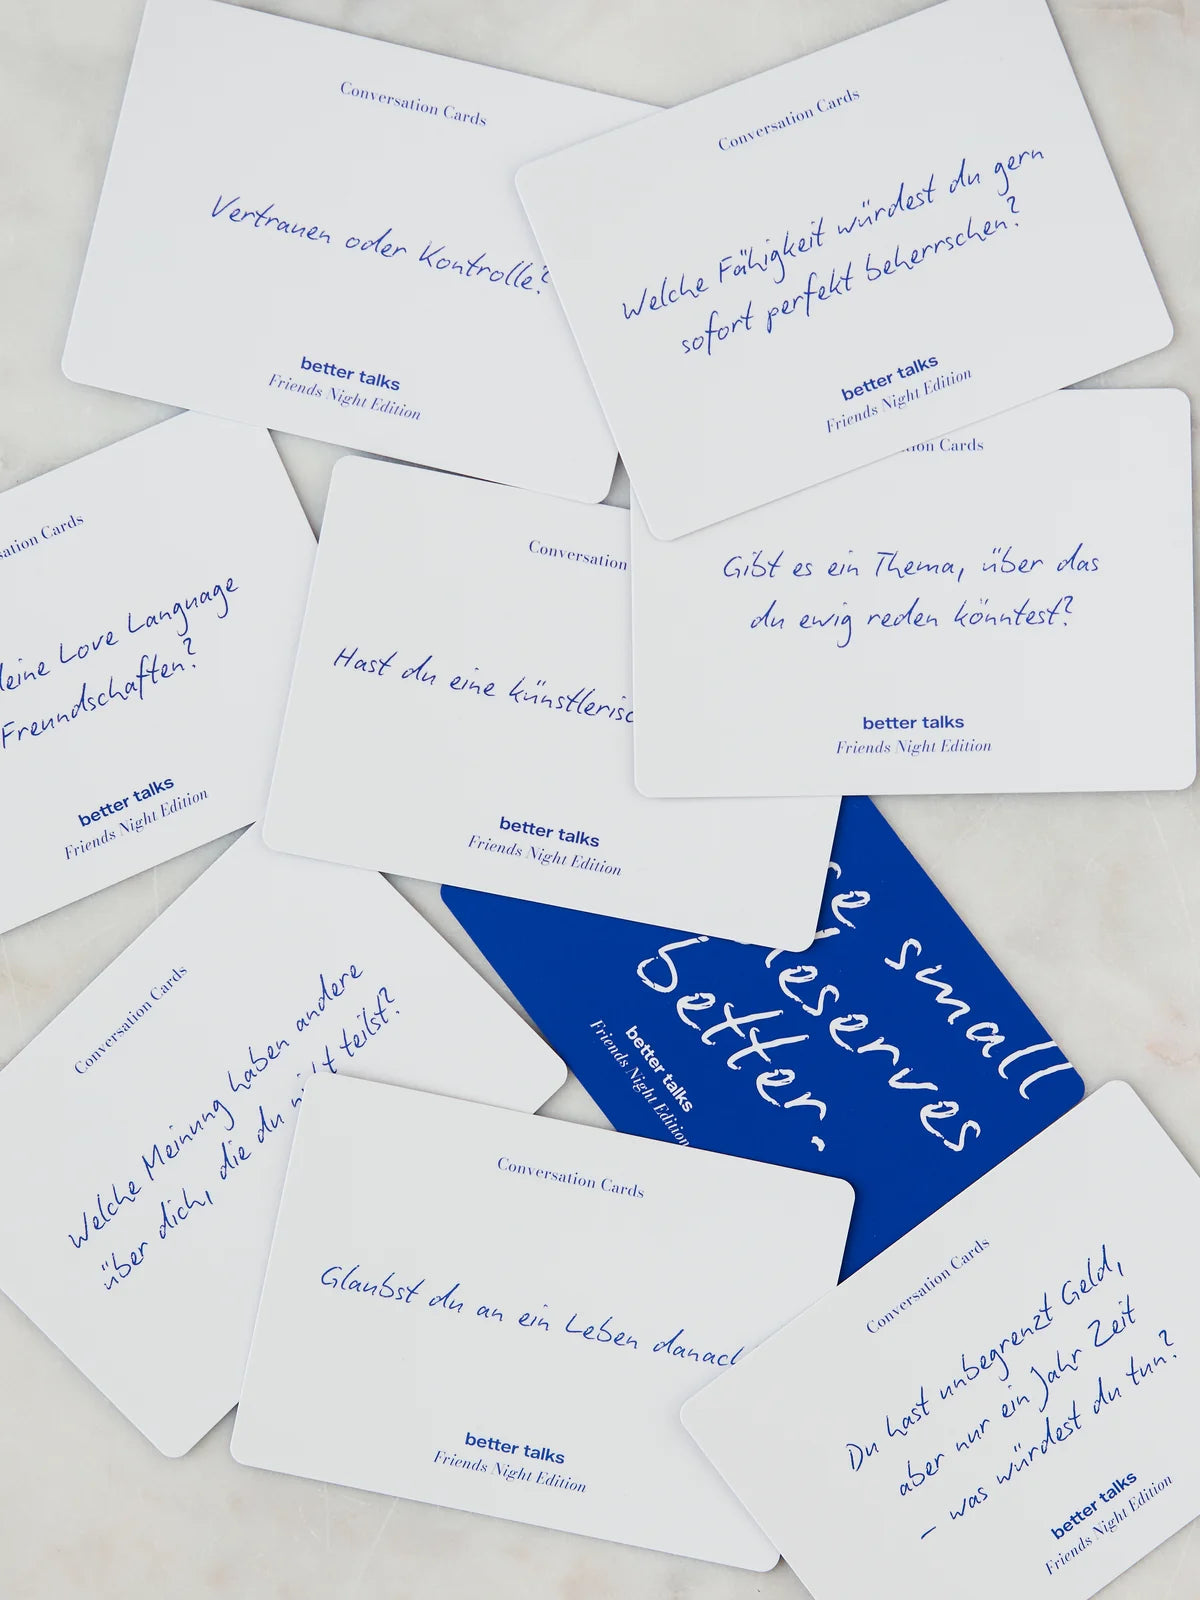 Conversation Cards
Vertrauen oder Kontrolle?
better talks
Friends Night Edition
Conversation Cards
Welche Fähigkeit würdest du gern
sofort perfekt beherrschen?
better talks
Friends Night Edition
Cards
Love Language
Freundschaften?
better talks
Friends Night Edition
Conversation
Hast du eine
better talks
Friends Night Edition
Cards
Gibt es ein Thema, über das
du ewig reden könntest?
better talks
Friends Night Edition
small
deserves
better.
better talks
Friends Night Edition
Conversation Cards
Welche Meinung haben andere
über dich, die du nicht teilst?
Conversation Cards
Glaubst du an ein Leben danach
better talks
Friends Night Edition
Conversation Cards
Du hast unbegrenzt Geld,
aber nur ein Jahr Zeit
– was würdest du tun?
better talks
Friends Night Edition